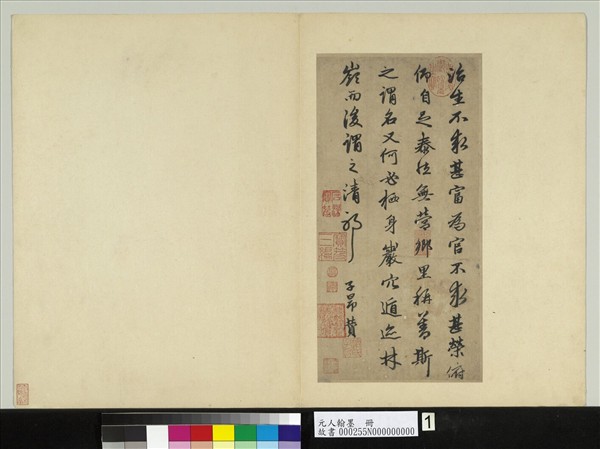 治生不求甚富為官不求甚榮俯
仰自足泰無營鄉里稱善斯
之謂名又何必栖身巖穴遁迹林
嶺而後謂之清耶
子昂贊
元人翰墨 冊
故書 000255N000000000
1